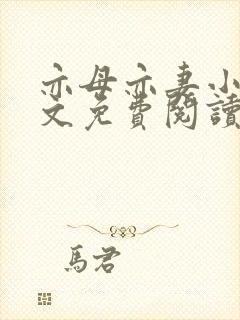 亦母亦妻小
文免費閱讀
馬君